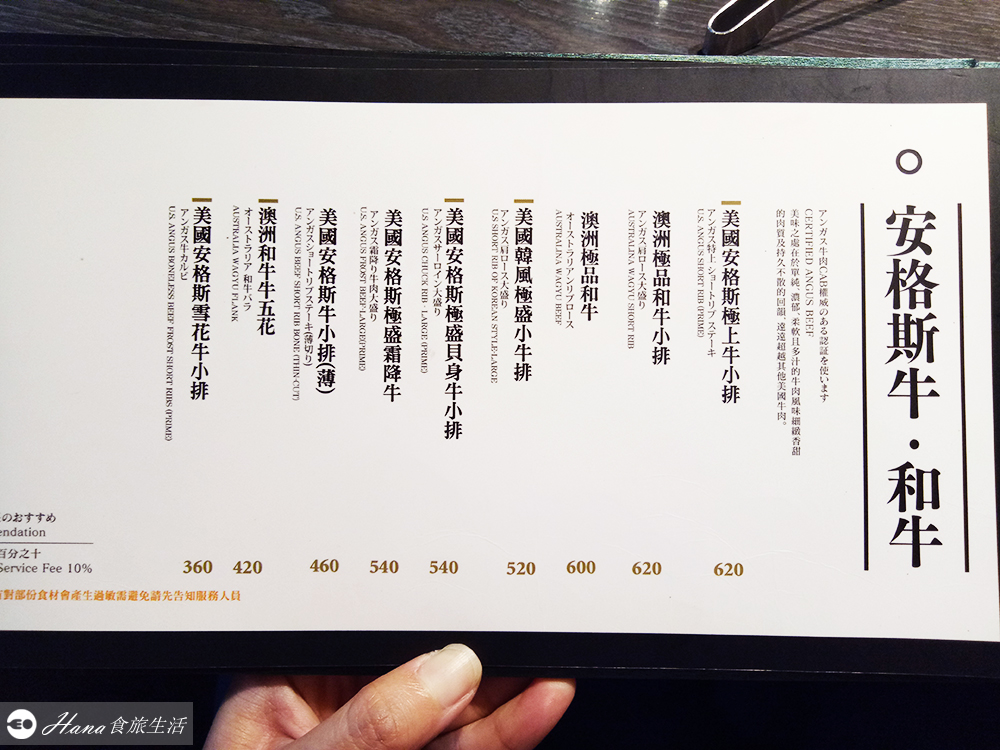 安格斯牛・和牛
アンガス牛肉CAB權威のある認証を使います
CERTIFIED ANGUS BEEF
美味之處在於單純、濃郁、柔軟且多汁的牛肉風味細緻香甜
的肉質及持久不散的回韻、遠遠超越其他美國牛肉。
美國安格斯極上牛小排
アンガス特上 ショートリブ ステーキ
U.S. ANGUS SHORT RIB (PRIME)
620
澳洲極品和牛小排
アンガス肩ロース大盛り
AUSTRALINA WAGYU SHORT RIB
620
澳洲極品和牛
オーストラリアンリブロース
AUSTRALINA WAGYU BEEF
600
美國韓風極盛小牛排
アンガス肩ロース大盛り
US SHORT RIB OF KOREAN STYLE-LARGE
520
美國安格斯極盛貝身牛小排
アンガスサーロイン大盛り
U.S. ANGUS CHUCK RIB - LARGE (PRIME)
540
美國安格斯極盛霜降牛
アンガス霜降り牛肉大盛り
U.S. ANGUS FROST BEEF-LARGE(PRIME)
540
美國安格斯牛小排(薄)
アンガスショートリブステーキ(薄切り)
U.S. ANGUS BEEF SHORT RIB BONE (THIN-CUT)
460
澳洲和牛牛五花
オーストラリア 和牛バラ
AUSTRALIA WAGYU FLANK
420
美國安格斯雪花牛小排
アンガス牛カルビ
U.S. ANGUS BONELESS BEEF FROST SHORT RIBS (PRIME)
360
のおすすめ
endation
百分之十
Service Fee 10%
對部份食材會產生過敏需避免請先告知服務人員
Hana食旅生活